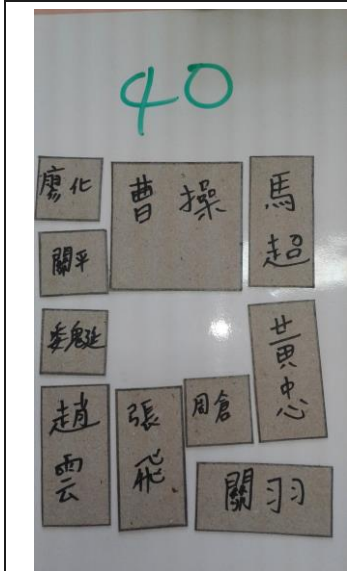 40
廖化
曹操
馬超
關平
魏延
黃忠
趙雲
張飛
周倉
關羽